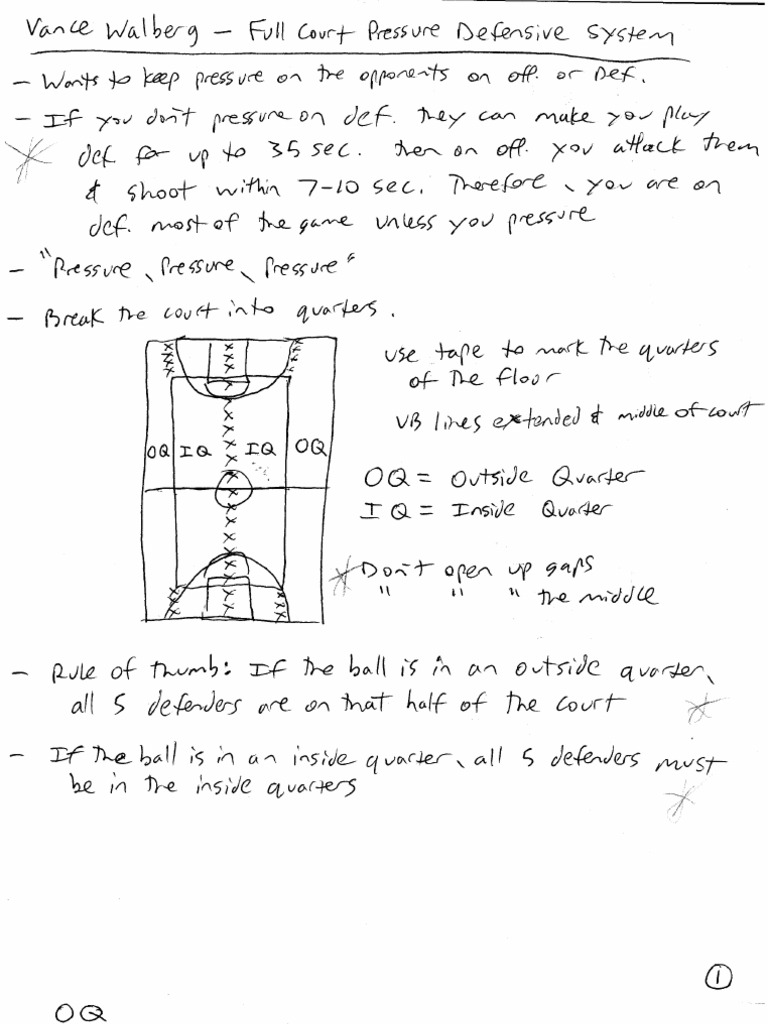 Vance Walberg – Full Court Pressure Defensive System
– Wants to keep pressure on the opponents on off. or Def.
– If you don't pressure on def. they can make you play
def for up to 35 sec. then on off. you attack them
& shoot within 7-10 sec. Therefore, you are on
def. most of the game unless you pressure
– "Pressure, Pressure, Pressure"
– Break the court into quarters.
use tape to mark the quarters
of the floor
VB lines extended & middle of court
OQ IQ IQ OQ
OQ = Outside Quarter
IQ = Inside Quarter
Don't open up gaps
" " " the middle
– Rule of thumb: If the ball is in an outside quarter,
all 5 defenders are on that half of the court
– If the ball is in an inside quarter, all 5 defenders must
be in the inside quarters
1
OQ